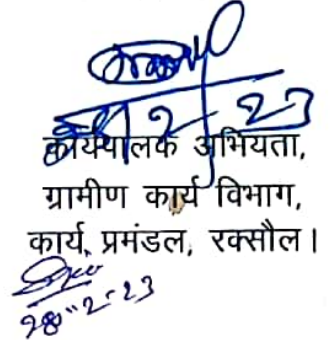 2-23
कार्यपालक अभियता,
ग्रामीण कार्य विभाग,
कार्य, प्रमंडल, रक्सौल।
28-2-23